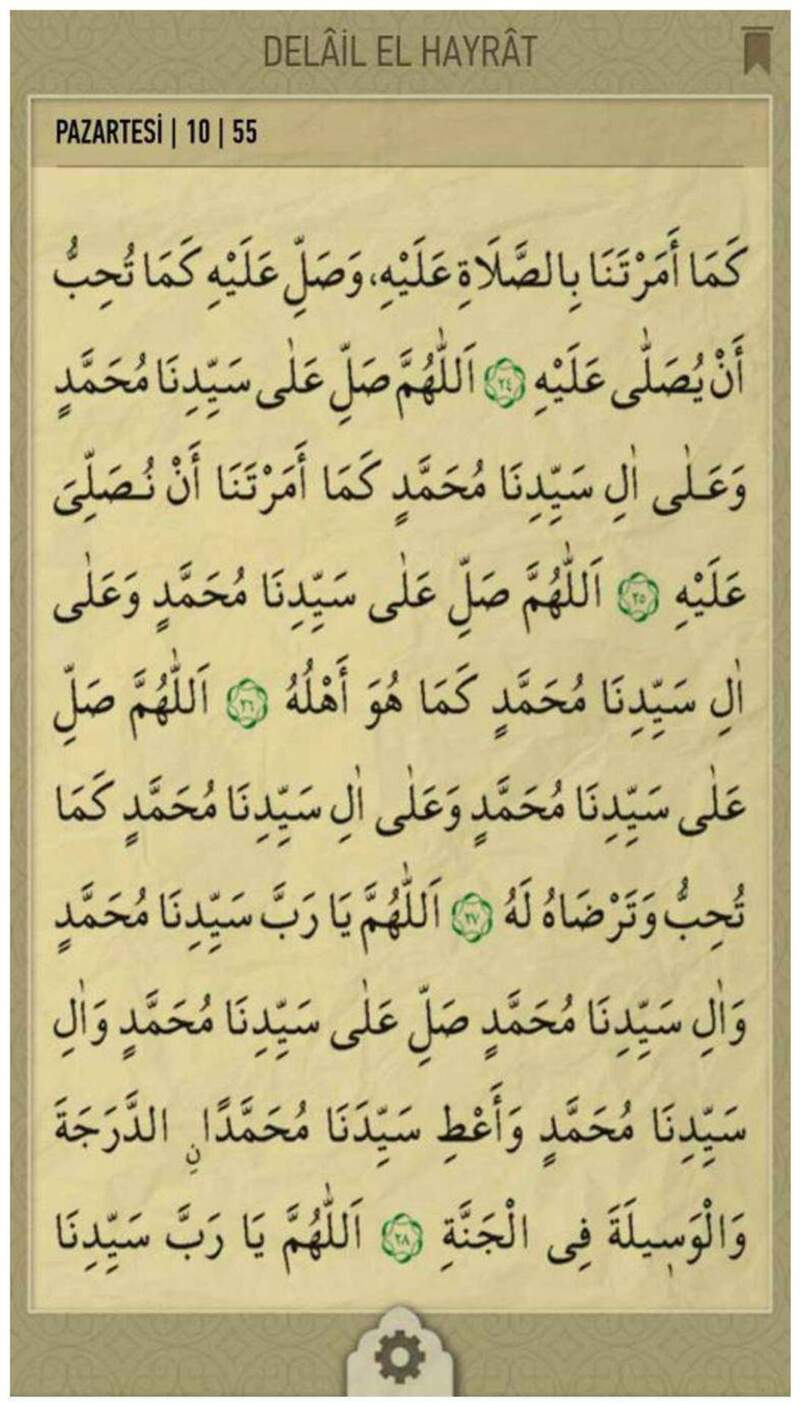 DELÂİL EL HAYRÂT
PAZARTESİ | 10 | 55
كَمَا أَمَرْتَنَا بِالصَّلَاةِ عَلَيْهِ، وَصَلِّ عَلَيْهِ كَمَا تُحِبُّ
أَنْ يُصَلّٰى عَلَيْهِ ٢٤ اَللّٰهُمَّ صَلِّ عَلٰى سَيِّدِنَا مُحَمَّدٍ
وَعَلٰى اٰلِ سَيِّدِنَا مُحَمَّدٍ كَمَا أَمَرْتَنَا أَنْ نُصَلِّىَ
عَلَيْهِ ٢٥ اَللّٰهُمَّ صَلِّ عَلٰى سَيِّدِنَا مُحَمَّدٍ وَعَلٰى
اٰلِ سَيِّدِنَا مُحَمَّدٍ كَمَا هُوَ أَهْلُهُ ٢٦ اَللّٰهُمَّ صَلِّ
عَلٰى سَيِّدِنَا مُحَمَّدٍ وَعَلٰى اٰلِ سَيِّدِنَا مُحَمَّدٍ كَمَا
تُحِبُّ وَتَرْضَاهُ لَهُ ٢٧ اَللّٰهُمَّ يَا رَبَّ سَيِّدِنَا مُحَمَّدٍ
وَاٰلِ سَيِّدِنَا مُحَمَّدٍ صَلِّ عَلٰى سَيِّدِنَا مُحَمَّدٍ وَاٰلِ
سَيِّدِنَا مُحَمَّدٍ وَأَعْطِ سَيِّدَنَا مُحَمَّدًا نِ الدَّرَجَةَ
وَالْوَسِيلَةَ فِى الْجَنَّةِ ٢٨ اَللّٰهُمَّ يَا رَبَّ سَيِّدِنَا